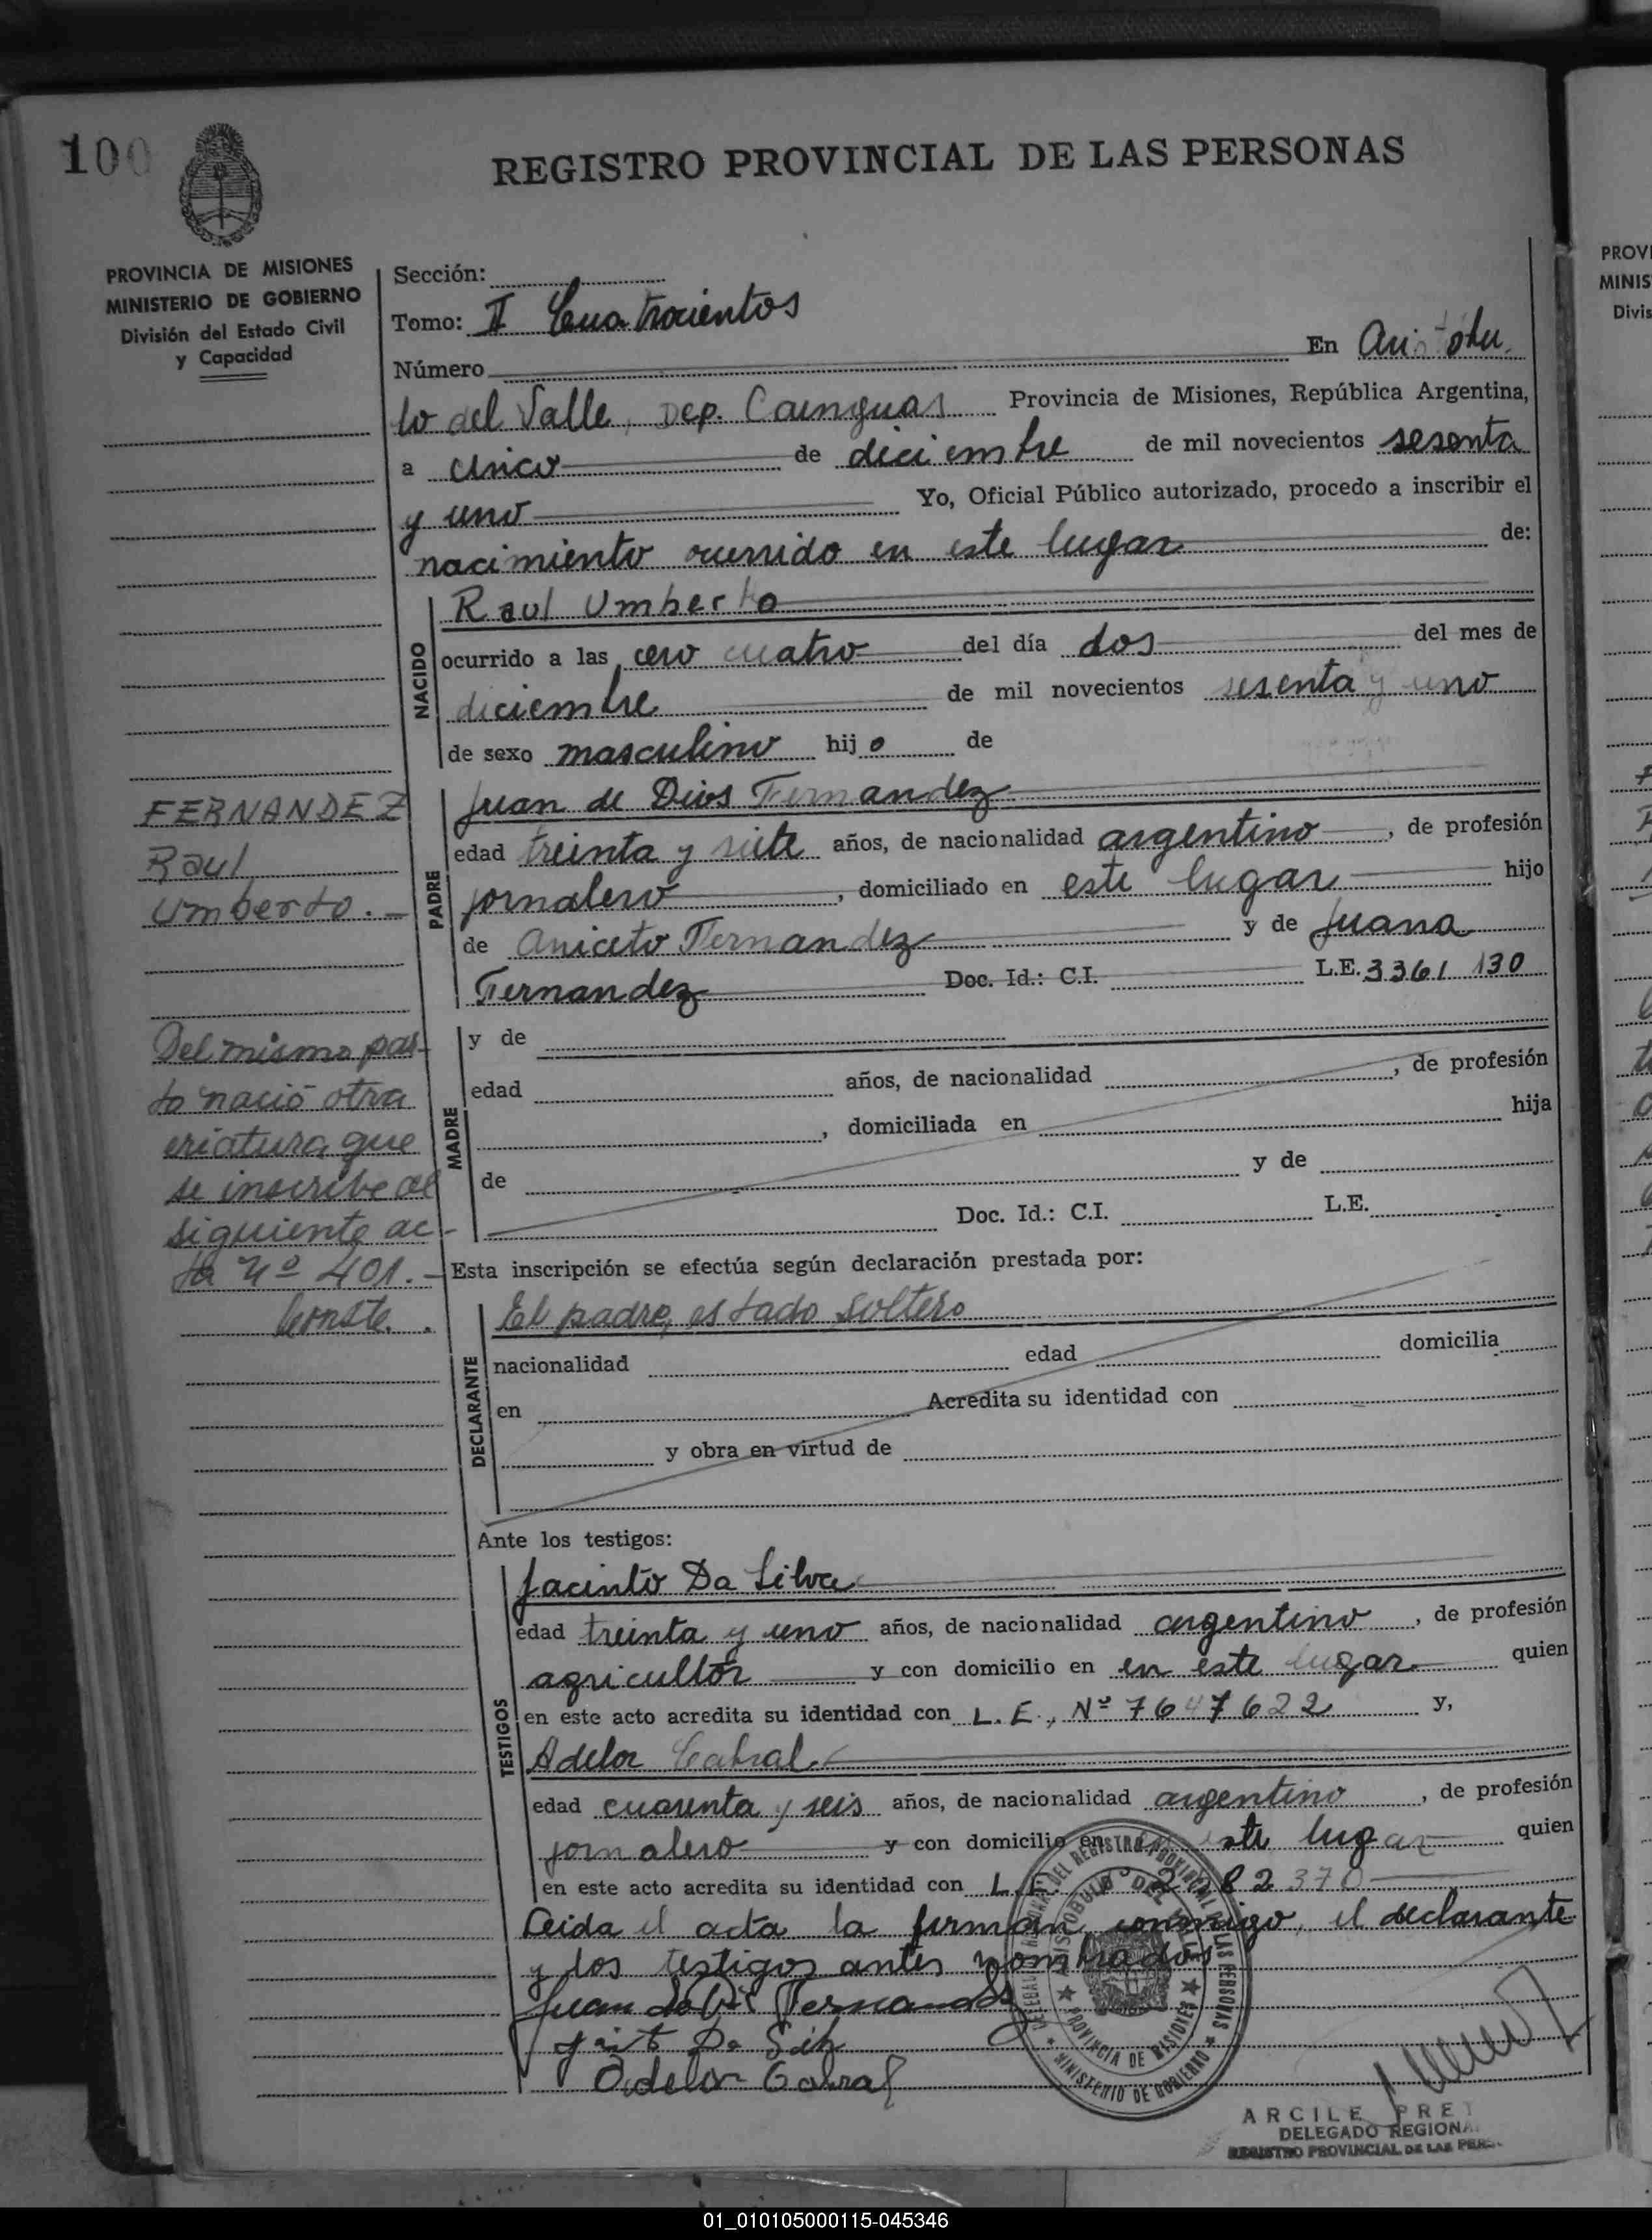 100
REGISTRO PROVINCIAL DE LAS PERSONAS
PROVINCIA DE MISIONES
MINISTERIO DE GOBIERNO
División del Estado Civil
y Capacidad
Sección:
Tomo: II Cuatrocientos
Número En Aristóbu
lo del Valle, Dep. Cainguas Provincia de Misiones, República Argentina,
a cinco de diciembre de mil novecientos sesenta
y uno Yo, Oficial Público autorizado, procedo a inscribir el
nacimiento ocurrido en este lugar de:
NACIDO
Raul Umberto
ocurrido a las cero cuatro del día dos del mes de
diciembre de mil novecientos sesenta y uno
de sexo masculino hijo de
FERNANDEZ
Raul
Umberto.-
PADRE
Juan de Dios Fernandez
edad treinta y siete años, de nacionalidad argentino, de profesión
jornalero, domiciliado en este lugar hijo
de Aniceto Fernandez y de Juana
Fernandez Doc. Id.: C.I. L.E. 3361130
Del mismo par-
to nació otra
criatura que
se inscribe al
siguiente ac-
ta Nº 401.-
Conste.
MADRE
y de
edad años, de nacionalidad , de profesión
, domiciliada en hija
de y de
Doc. Id.: C.I. L.E.
Esta inscripción se efectúa según declaración prestada por:
DECLARANTE
El padre, estado soltero
nacionalidad edad domicilia
en Acredita su identidad con
y obra en virtud de
Ante los testigos:
TESTIGOS
Jacinto Da Silva
edad treinta y uno años, de nacionalidad argentino, de profesión
agricultor y con domicilio en en este lugar quien
en este acto acredita su identidad con L.E., Nº 7647622 y,
Adelor Cabral
edad cuarenta y seis años, de nacionalidad argentino, de profesión
jornalero y con domicilio en este lugar quien
en este acto acredita su identidad con L.E.
Leida el acta la firman conmigo, el declarante
y los testigos antes nombrados
Juan de Dios Fernandez
Da Silva
Adelor Cabral
DEL REGISTRO PROVINCIAL DE LAS PERSONAS
ARISTOBULO DEL VALLE
PROVINCIA DE MISIONES
MINISTERIO DE GOBIERNO
ARCILE PRET
DELEGADO REGIONAL
REGISTRO PROVINCIAL DE LAS PERS.
PROVI
MINIS
Divis
01_010105000115-045346